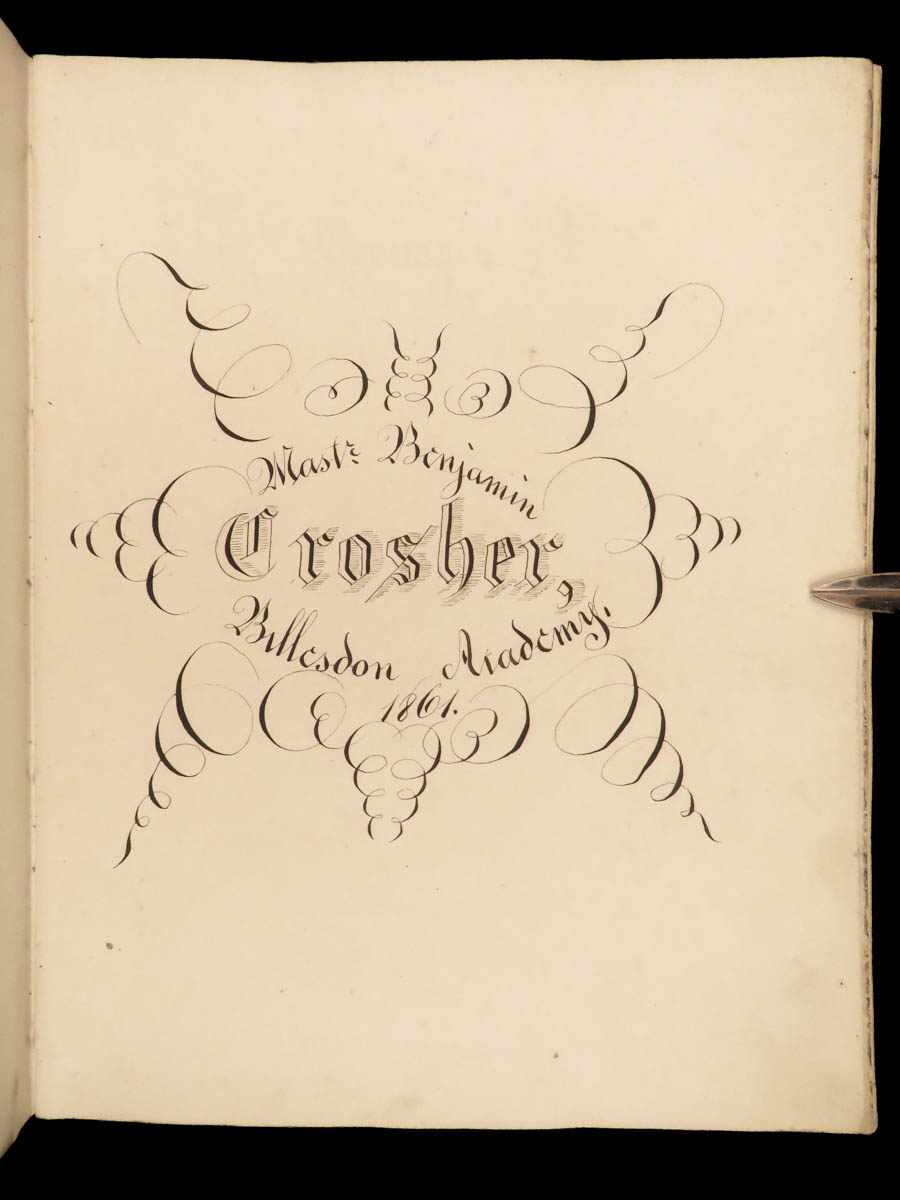 Mastr. Benjamin
Crosher,
Billesdon Academy.
1861.